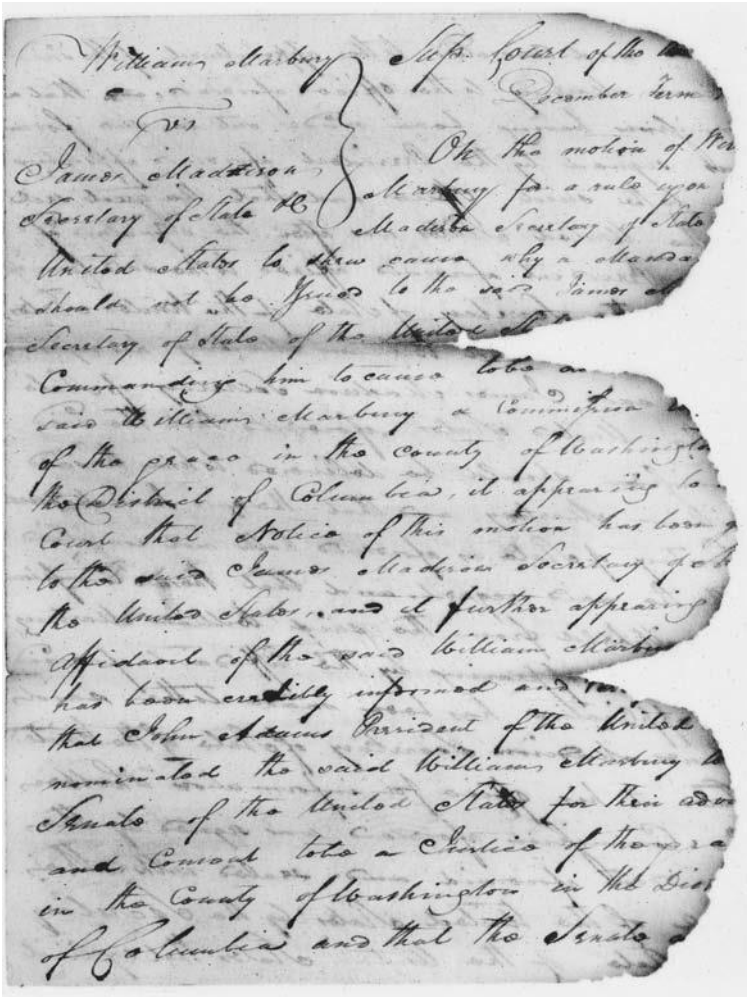 William Marbury Sup. Court of the
vs December Term
James Maddison On the motion of
Secretary of State &c Marbury for a rule upon
Madison Secretary of State
United States to shew cause why a Manda
should not be Issued to the said James M
Secretary of State of the United St
Commanding him to cause to be
said William Marbury a Commission
of the peace in the county of Washingto
the District of Columbia, it appearing to
Court that Notice of this motion has been g
to the said James Madison Secretary of St
the United States, and it further appearing
Affidavit of the said William Marbu
has been credibly informed and
that John Adams President of the United
nominated the said William Marbury to
Senate of the United States for their adv
and Consent to be a Justice of the pea
in the County of Washington in the Dis
of Columbia and that the Senate